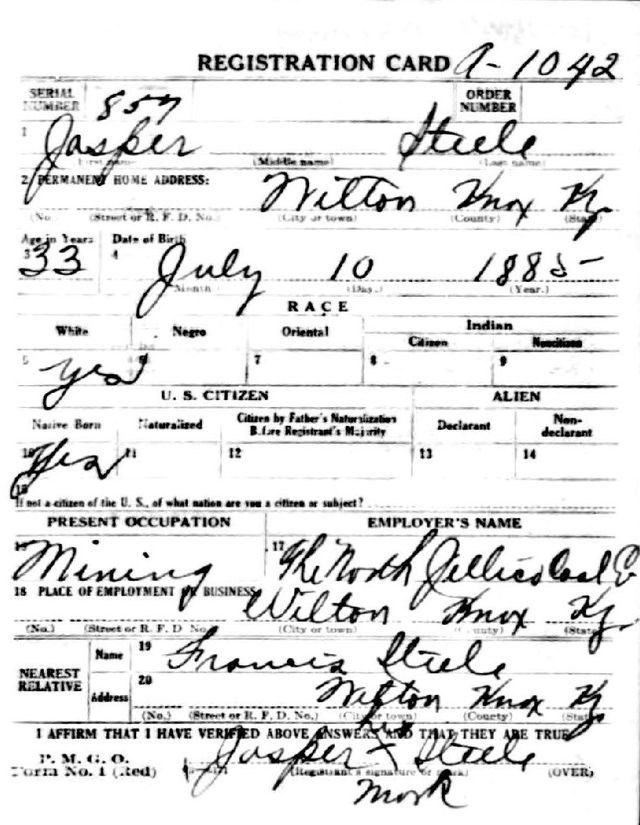 REGISTRATION CARD A-1042
SERIAL NUMBER 857 ORDER NUMBER
1 Jasper Steele
(First name) (Middle name) (Last name)
2 PERMANENT HOME ADDRESS:
Wilton Knox Ky
(No.) (Street or R. F. D. No.) (City or town) (County) (State)
Age in Years Date of Birth
3 33 4 July 10 1885
(Month) (Day.) (Year.)
RACE
White Negro Oriental Indian
Citizen Noncitizen
5 yes 6 7 8 9
U. S. CITIZEN ALIEN
Native Born Naturalized Citizen by Father's Naturalization Before Registrant's Majority Declarant Non-declarant
10 Yes 11 12 13 14
15
If not a citizen of the U. S., of what nation are you a citizen or subject?
PRESENT OCCUPATION EMPLOYER'S NAME
16 Mining 17 The North Jellico Coal Co
18 PLACE OF EMPLOYMENT OR BUSINESS
Wilton Knox Ky
(No.) (Street or R. F. D. No.) (City or town) (County) (State)
NEAREST RELATIVE Name 19 Francis Steele
Address 20 Wilton Knox Ky
(No.) (Street or R. F. D. No.) (City or town) (County) (State)
I AFFIRM THAT I HAVE VERIFIED ABOVE ANSWERS AND THAT THEY ARE TRUE
P. M. G. O.
Form No. 1 (Red) Jasper x Steele
(Registrant's signature or mark) (OVER)
mark